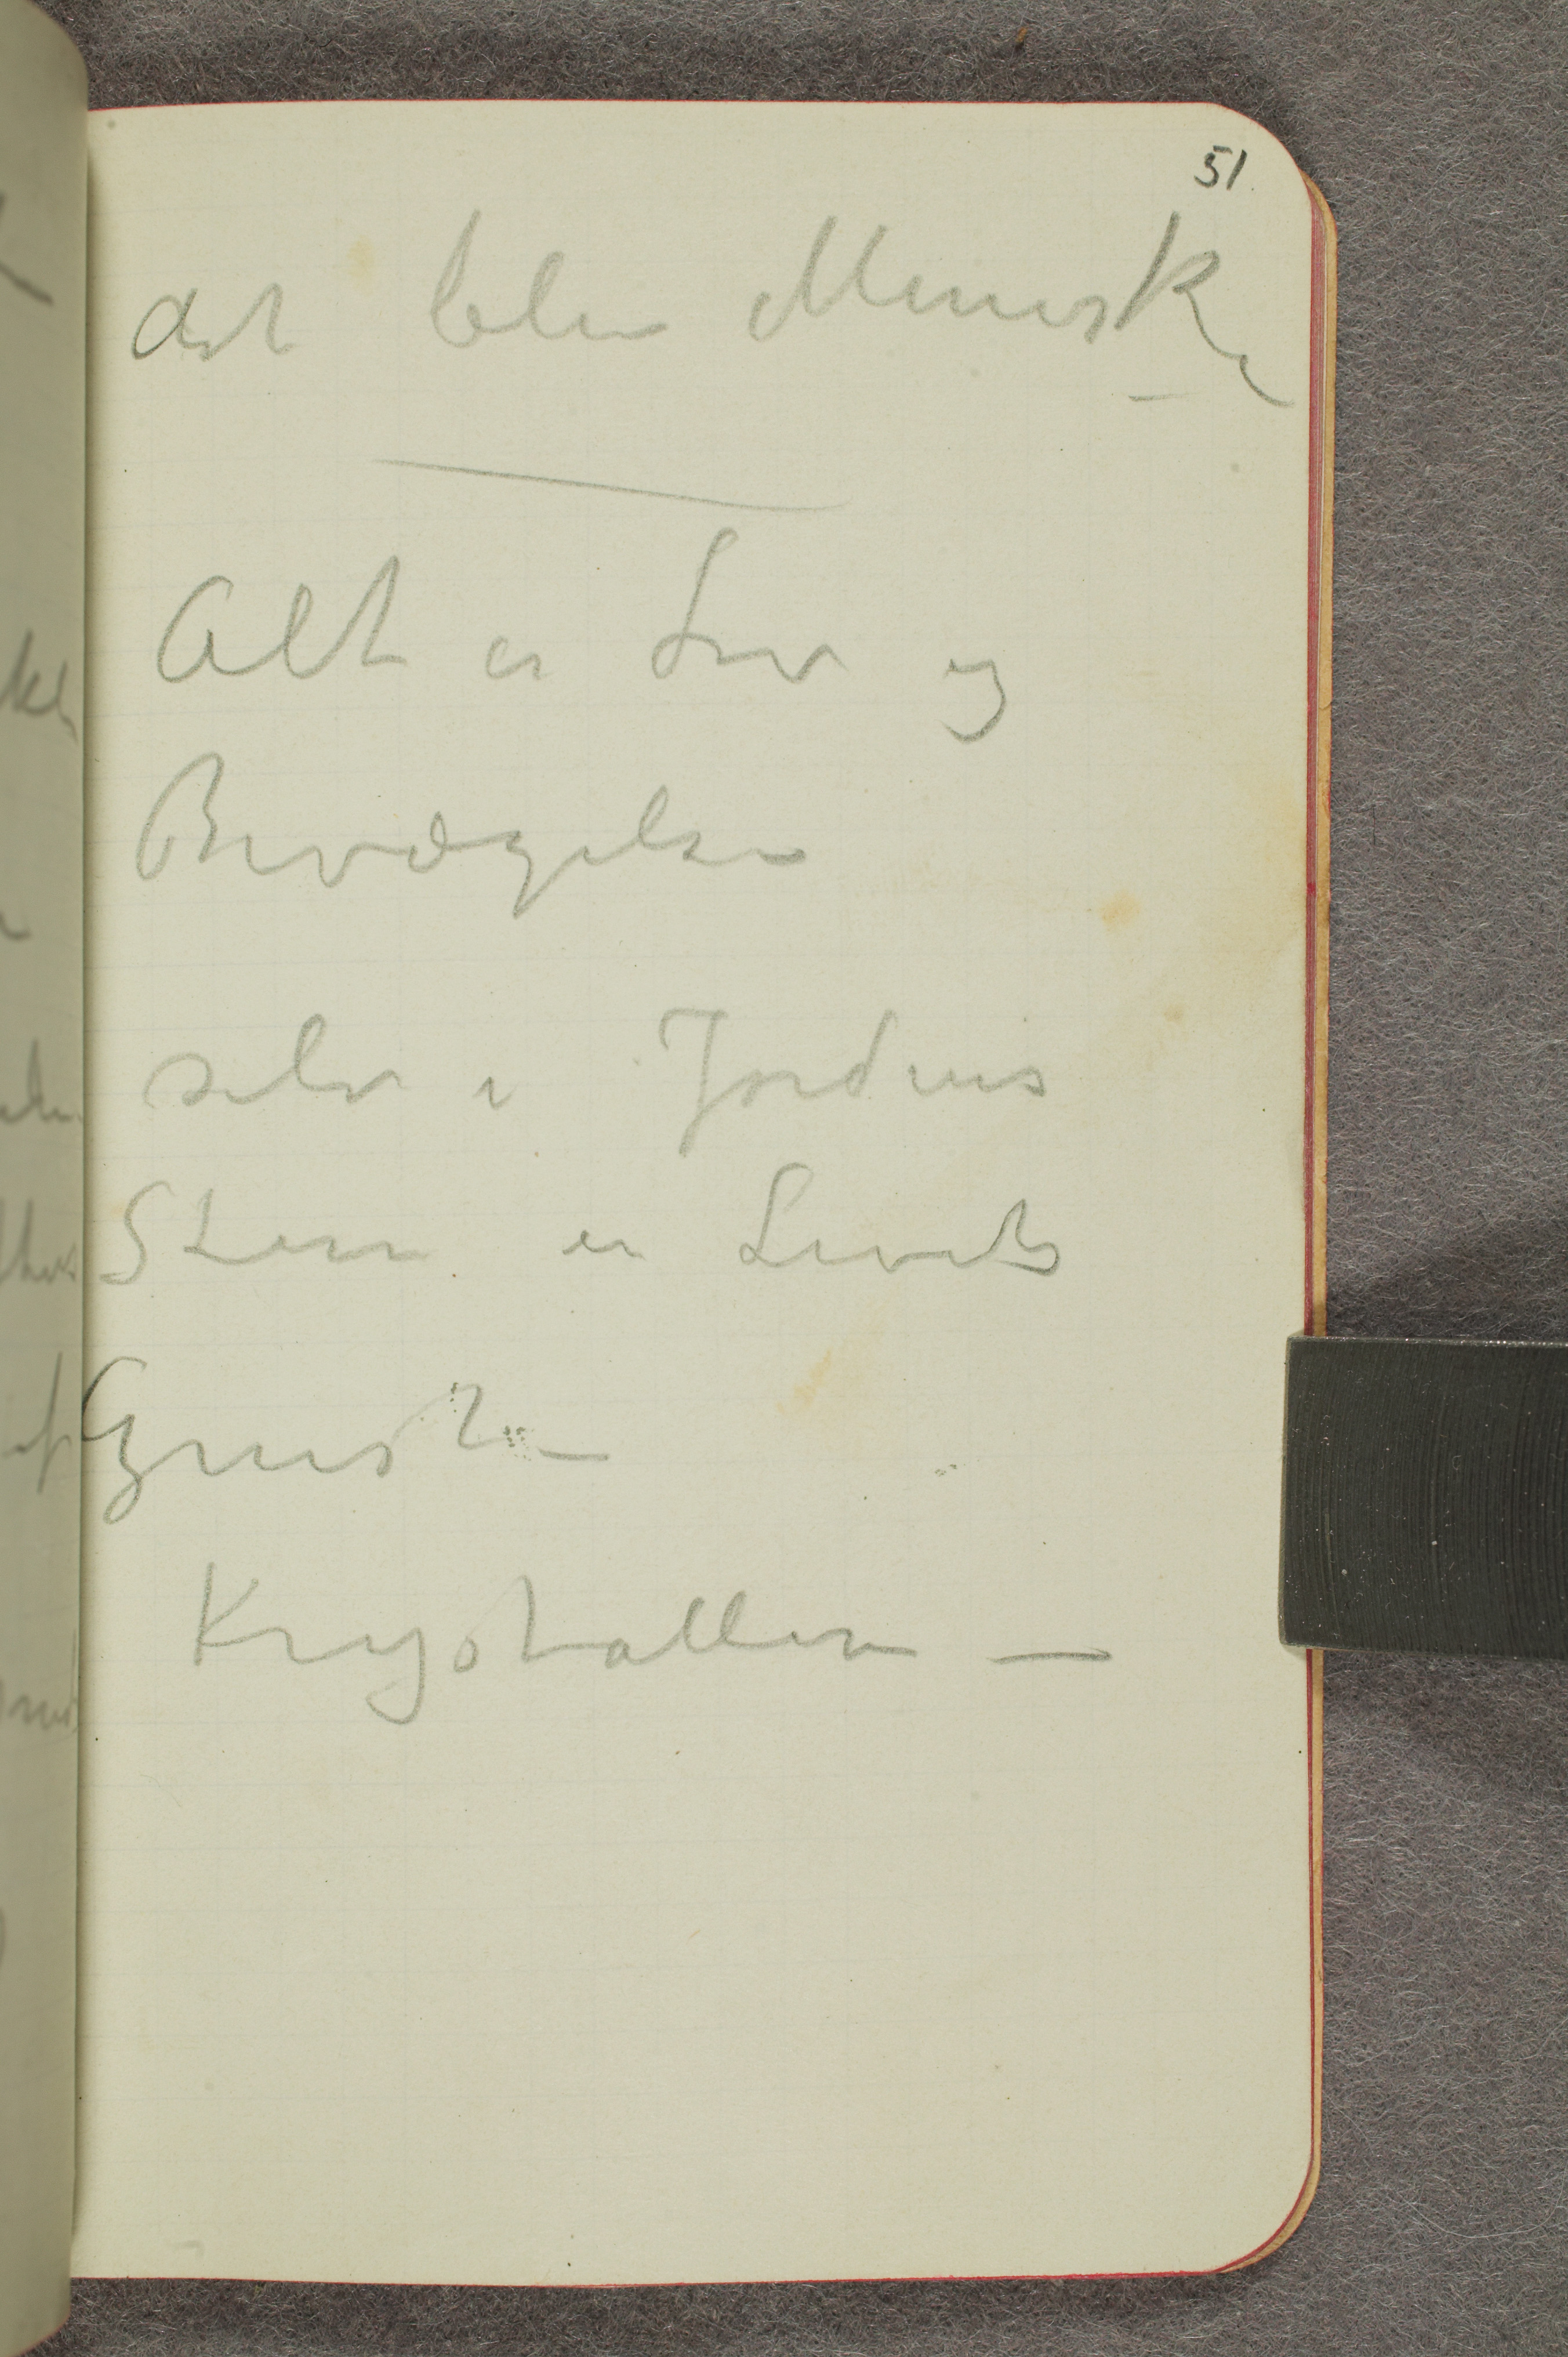 51
det blev Menneske
Alt er Liv og
Bevægelse
selv i Jordens
Steen er Livets
Gnist –
Krystallen —